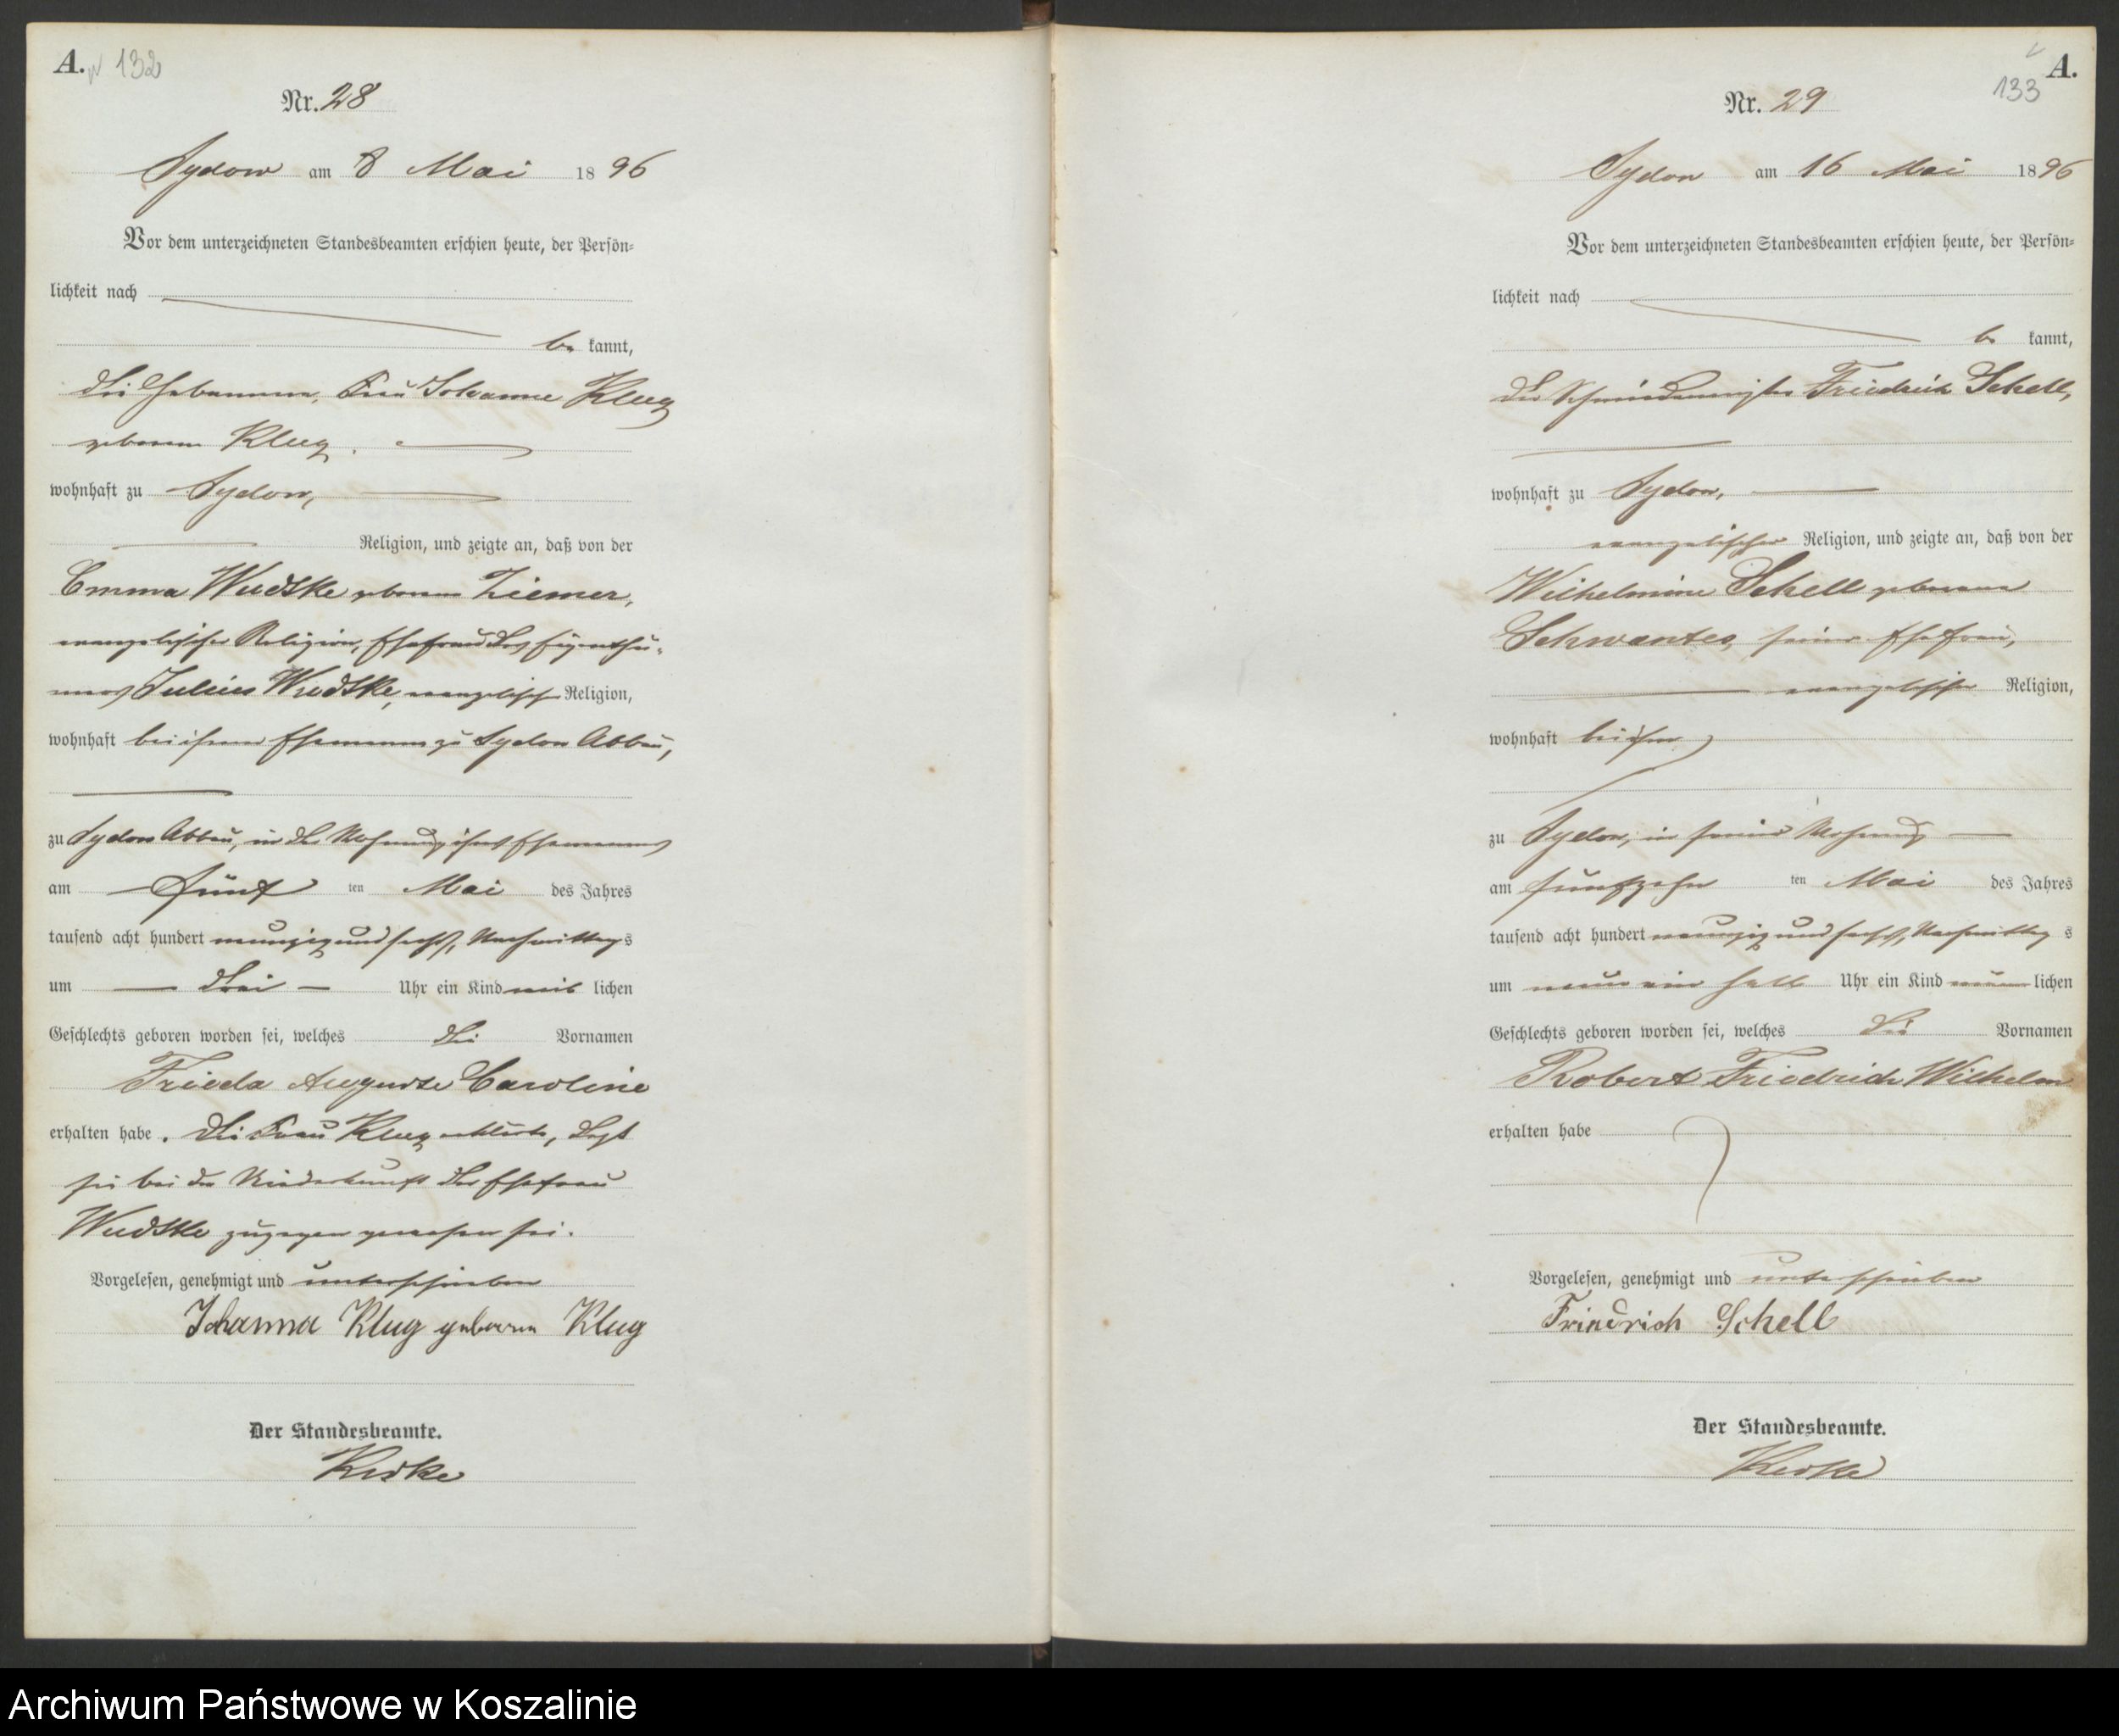 A. 132
Nr. 28
Sydow am 8 Mai 1896
Vor dem unterzeichneten Standesbeamten erschien heute, der Persön-
lichkeit nach
be kannt,
die Hebamme, Frau Johanne Klug
geborene Klug.
wohnhaft zu Sydow,
Religion, und zeigte an, daß von der
Emma Wudtke geborene Ziemer,
evangelischer Religion, Ehefrau des Eigenthü-
mers Julius Wudtke, evangelischer Religion,
wohnhaft bei ihrem Ehemanne zu Sydow Abbau,
zu Sydow Abbau, in der Wohnung ihres Ehemannes
am fünf ten Mai des Jahres
tausend acht hundert neunzig und sechs, Nachmittags
um drei Uhr ein Kind weib lichen
Geschlechts geboren worden sei, welches die Vornamen
Frieda Auguste Caroline
erhalten habe. Die Frau Klug erklärte, daß
sie bei der Niederkunft der Ehefrau
Wudtke zugegen gewesen sei.
Vorgelesen, genehmigt und unterschrieben
Johanna Klug geborene Klug
Der Standesbeamte.
A.
133
Nr. 29
Sydow am 16 Mai 1896
Vor dem unterzeichneten Standesbeamten erschien heute, der Persön-
lichkeit nach
be kannt,
der Schmiedemeister Friedrich Schell,
wohnhaft zu Sydow,
evangelischer Religion, und zeigte an, daß von der
Wilhelmine Schell geborene
Schwantes, seiner Ehefrau,
evangelischer Religion,
wohnhaft bei ihm
zu Sydow, in seiner Wohnung
am fünfzehn ten Mai des Jahres
tausend acht hundert neunzig und sechs, Nachmittag s
um neun ein halb Uhr ein Kind männ lichen
Geschlechts geboren worden sei, welches die Vornamen
Robert Friedrich Wilhelm
erhalten habe
Vorgelesen, genehmigt und unterschrieben
Friedrich Schell
Der Standesbeamte.
Archiwum Państwowe w Koszalinie